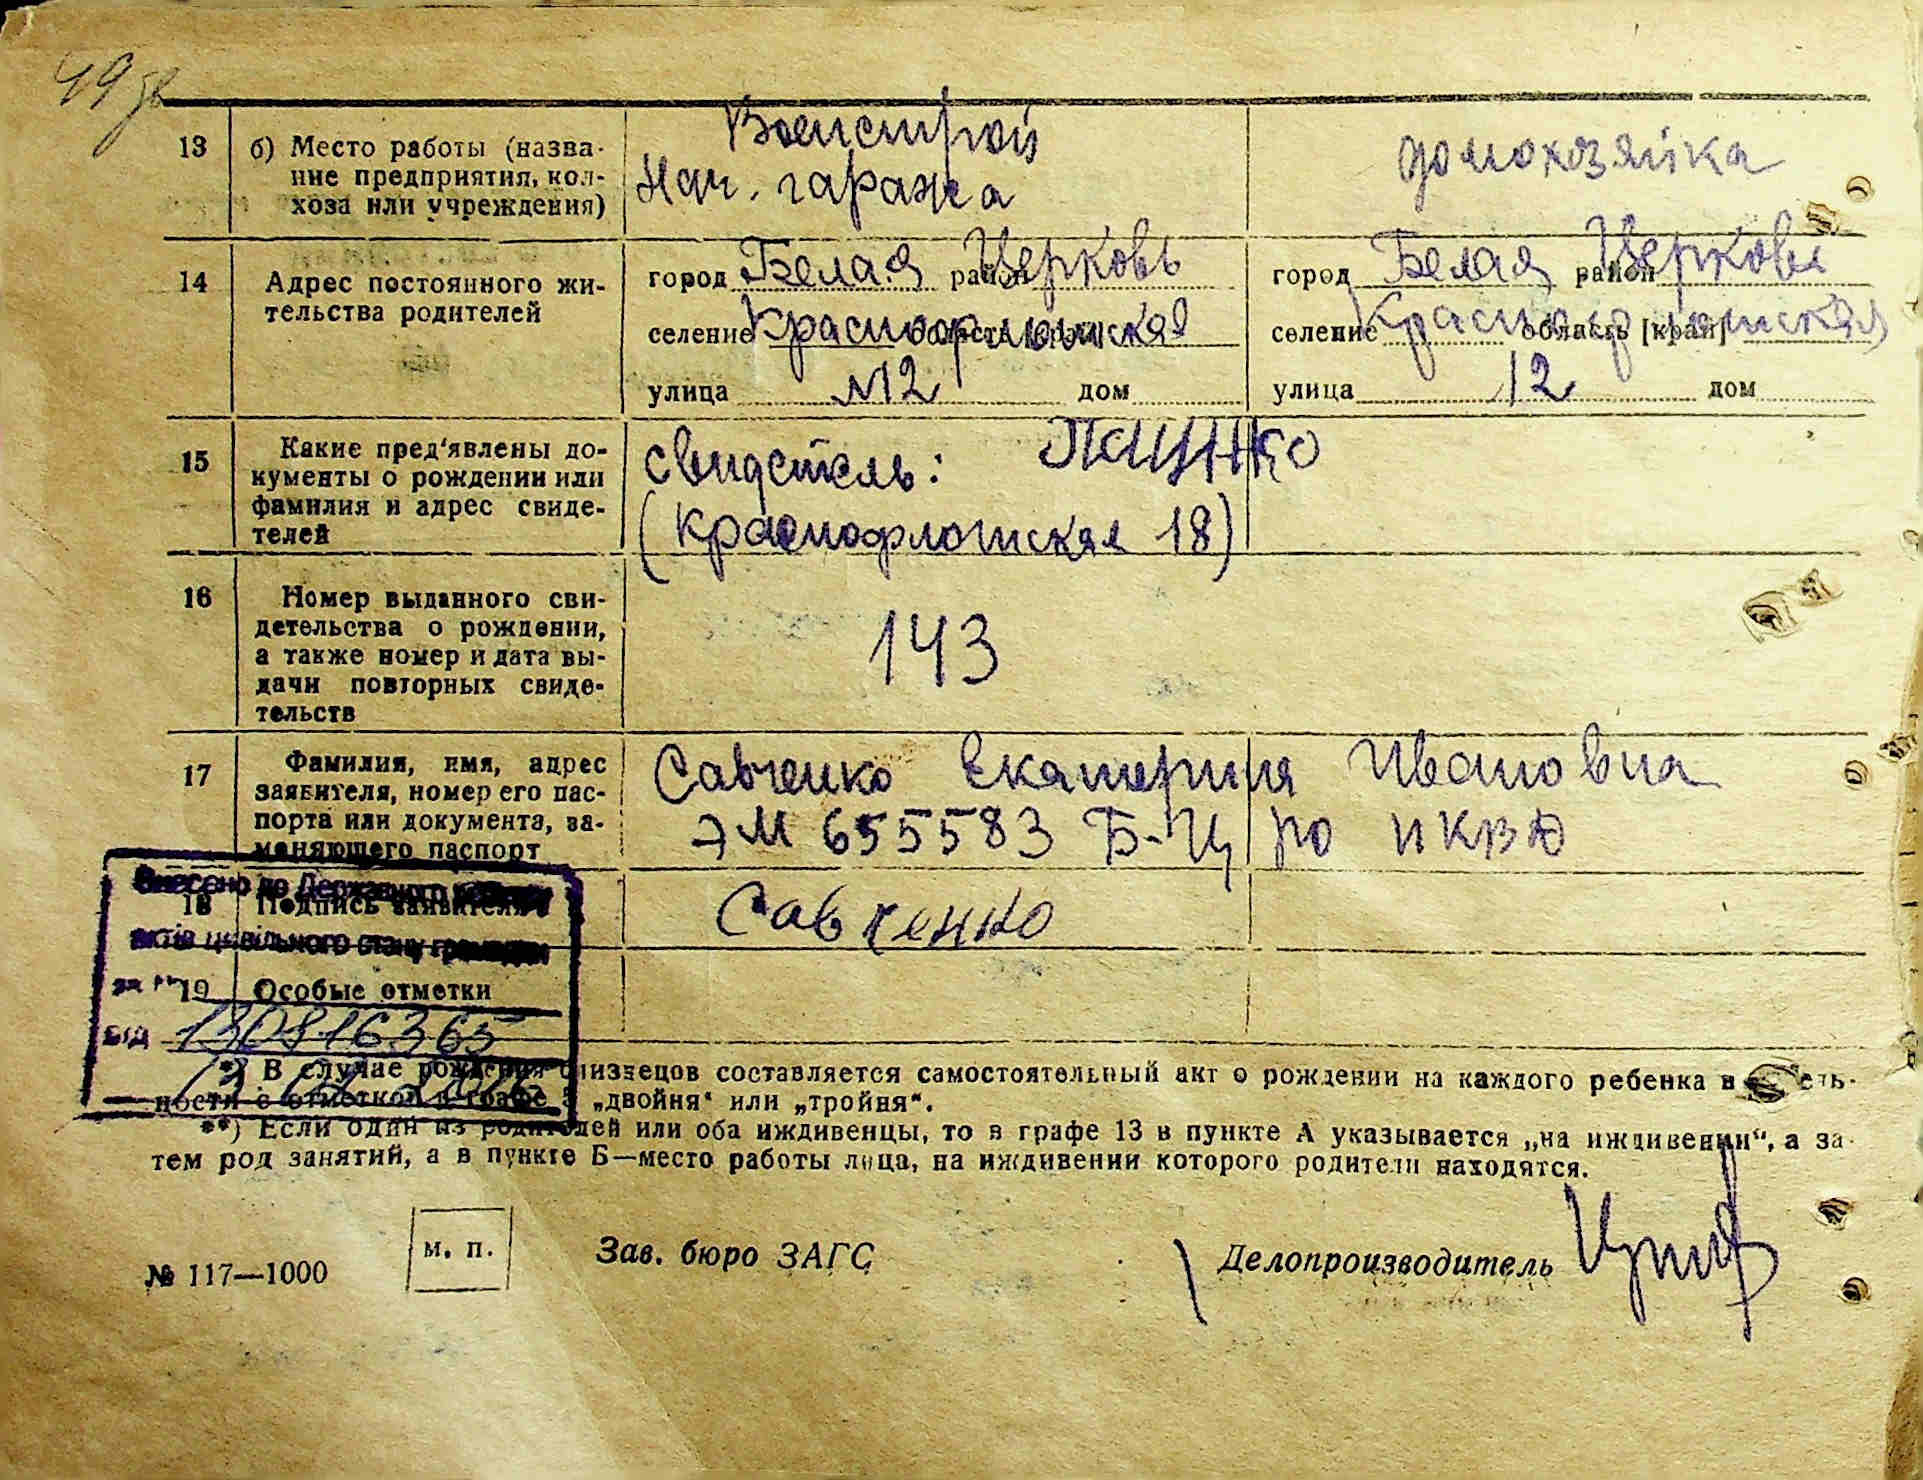 49
13 б) Место работы (назва-
ние предприятия, кол-
хоза или учреждения)
Военстрой
Нач. гаража
домохозяйка
14 Адрес постоянного жи-
тельства родителей
город Белая Церковь район
селение Красноармейская область [край]
улица №12 дом
город Белая Церковь район
селение Красноармейская область [край]
улица 12 дом
15 Какие пред'явлены до-
кументы о рождении или
фамилия и адрес свиде-
телей
свидетель:
(Краснофлотская 18)
16 Номер выданного сви-
детельства о рождении,
а также номер и дата вы-
дачи повторных свиде-
тельств
143
17 Фамилия, имя, адрес
заявителя, номер его пас-
порта или документа, за-
меняющего паспорт
Савченко Екатерина Ивановна
ЭМ 655583 Б-Ц РО НКВД
18 Подпись заявителя
Савченко
Внесено до Державного
актів цивільного стану громадян
за №
від
19 Особые отметки
*) В случае рождения близнецов составляется самостоятельный акт о рождении на каждого ребенка в
ности с отметкой в графе 3 „двойня“ или „тройня“.
**) Если один из родителей или оба иждивенцы, то в графе 13 в пункте А указывается „на иждивении“, а за-
тем род занятий, а в пункте Б—место работы лица, на иждивении которого родители находятся.
№ 117—1000
м. п.
Зав. бюро ЗАГС
Делопроизводитель